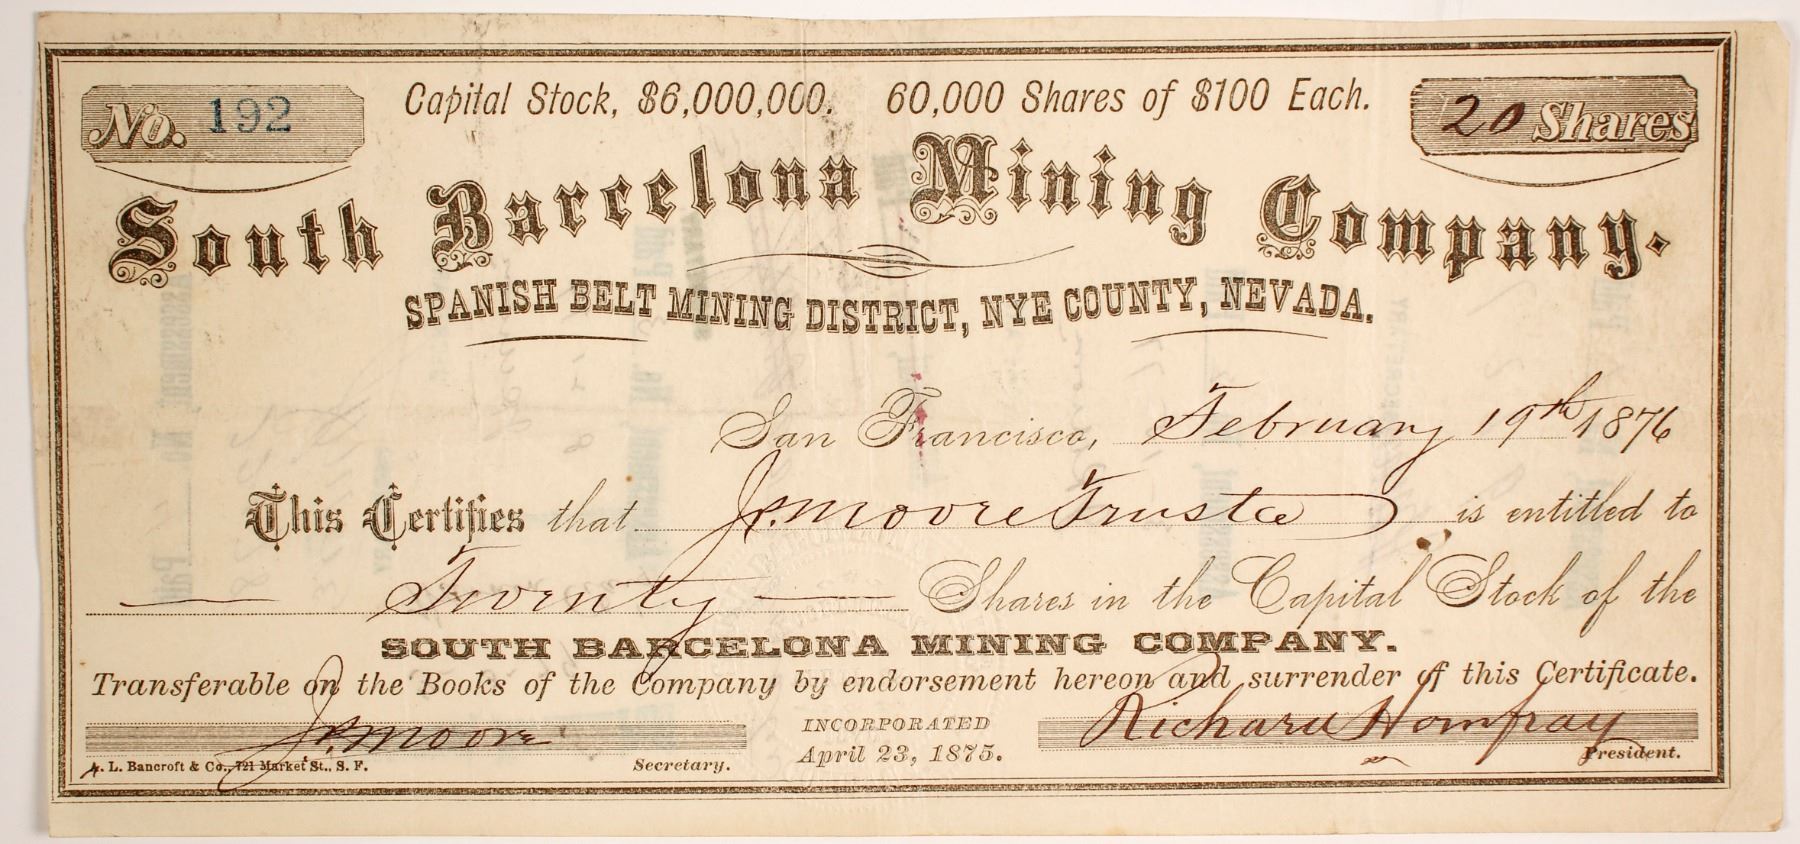 No. 192
Capital Stock, $6,000,000. 60,000 Shares of $100 Each.
20 Shares
South Barcelona Mining Company.
SPANISH BELT MINING DISTRICT, NYE COUNTY, NEVADA.
San Francisco, February 19th 1876
This Certifies that Jn. Moore Trustee is entitled to
Twenty Shares in the Capital Stock of the
SOUTH BARCELONA MINING COMPANY.
Transferable on the Books of the Company by endorsement hereon and surrender of this Certificate.
Jn. Moore
Secretary.
INCORPORATED
April 23, 1875.
Richard Homfray
President.
A. L. Bancroft & Co., 721 Market St., S. F.